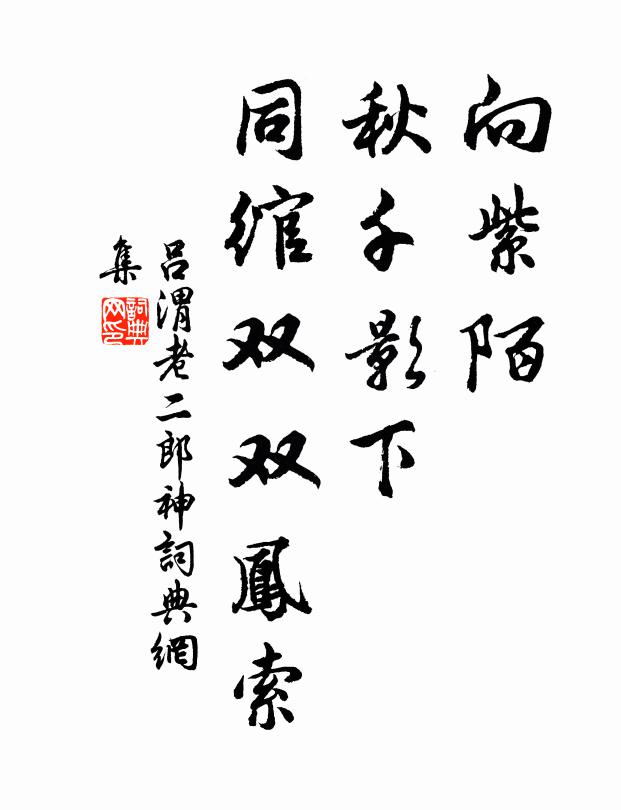 向紫陌
秋千影下
同绾双双鳳索
吕渭老二郎神詞典網
集
詞典
网印